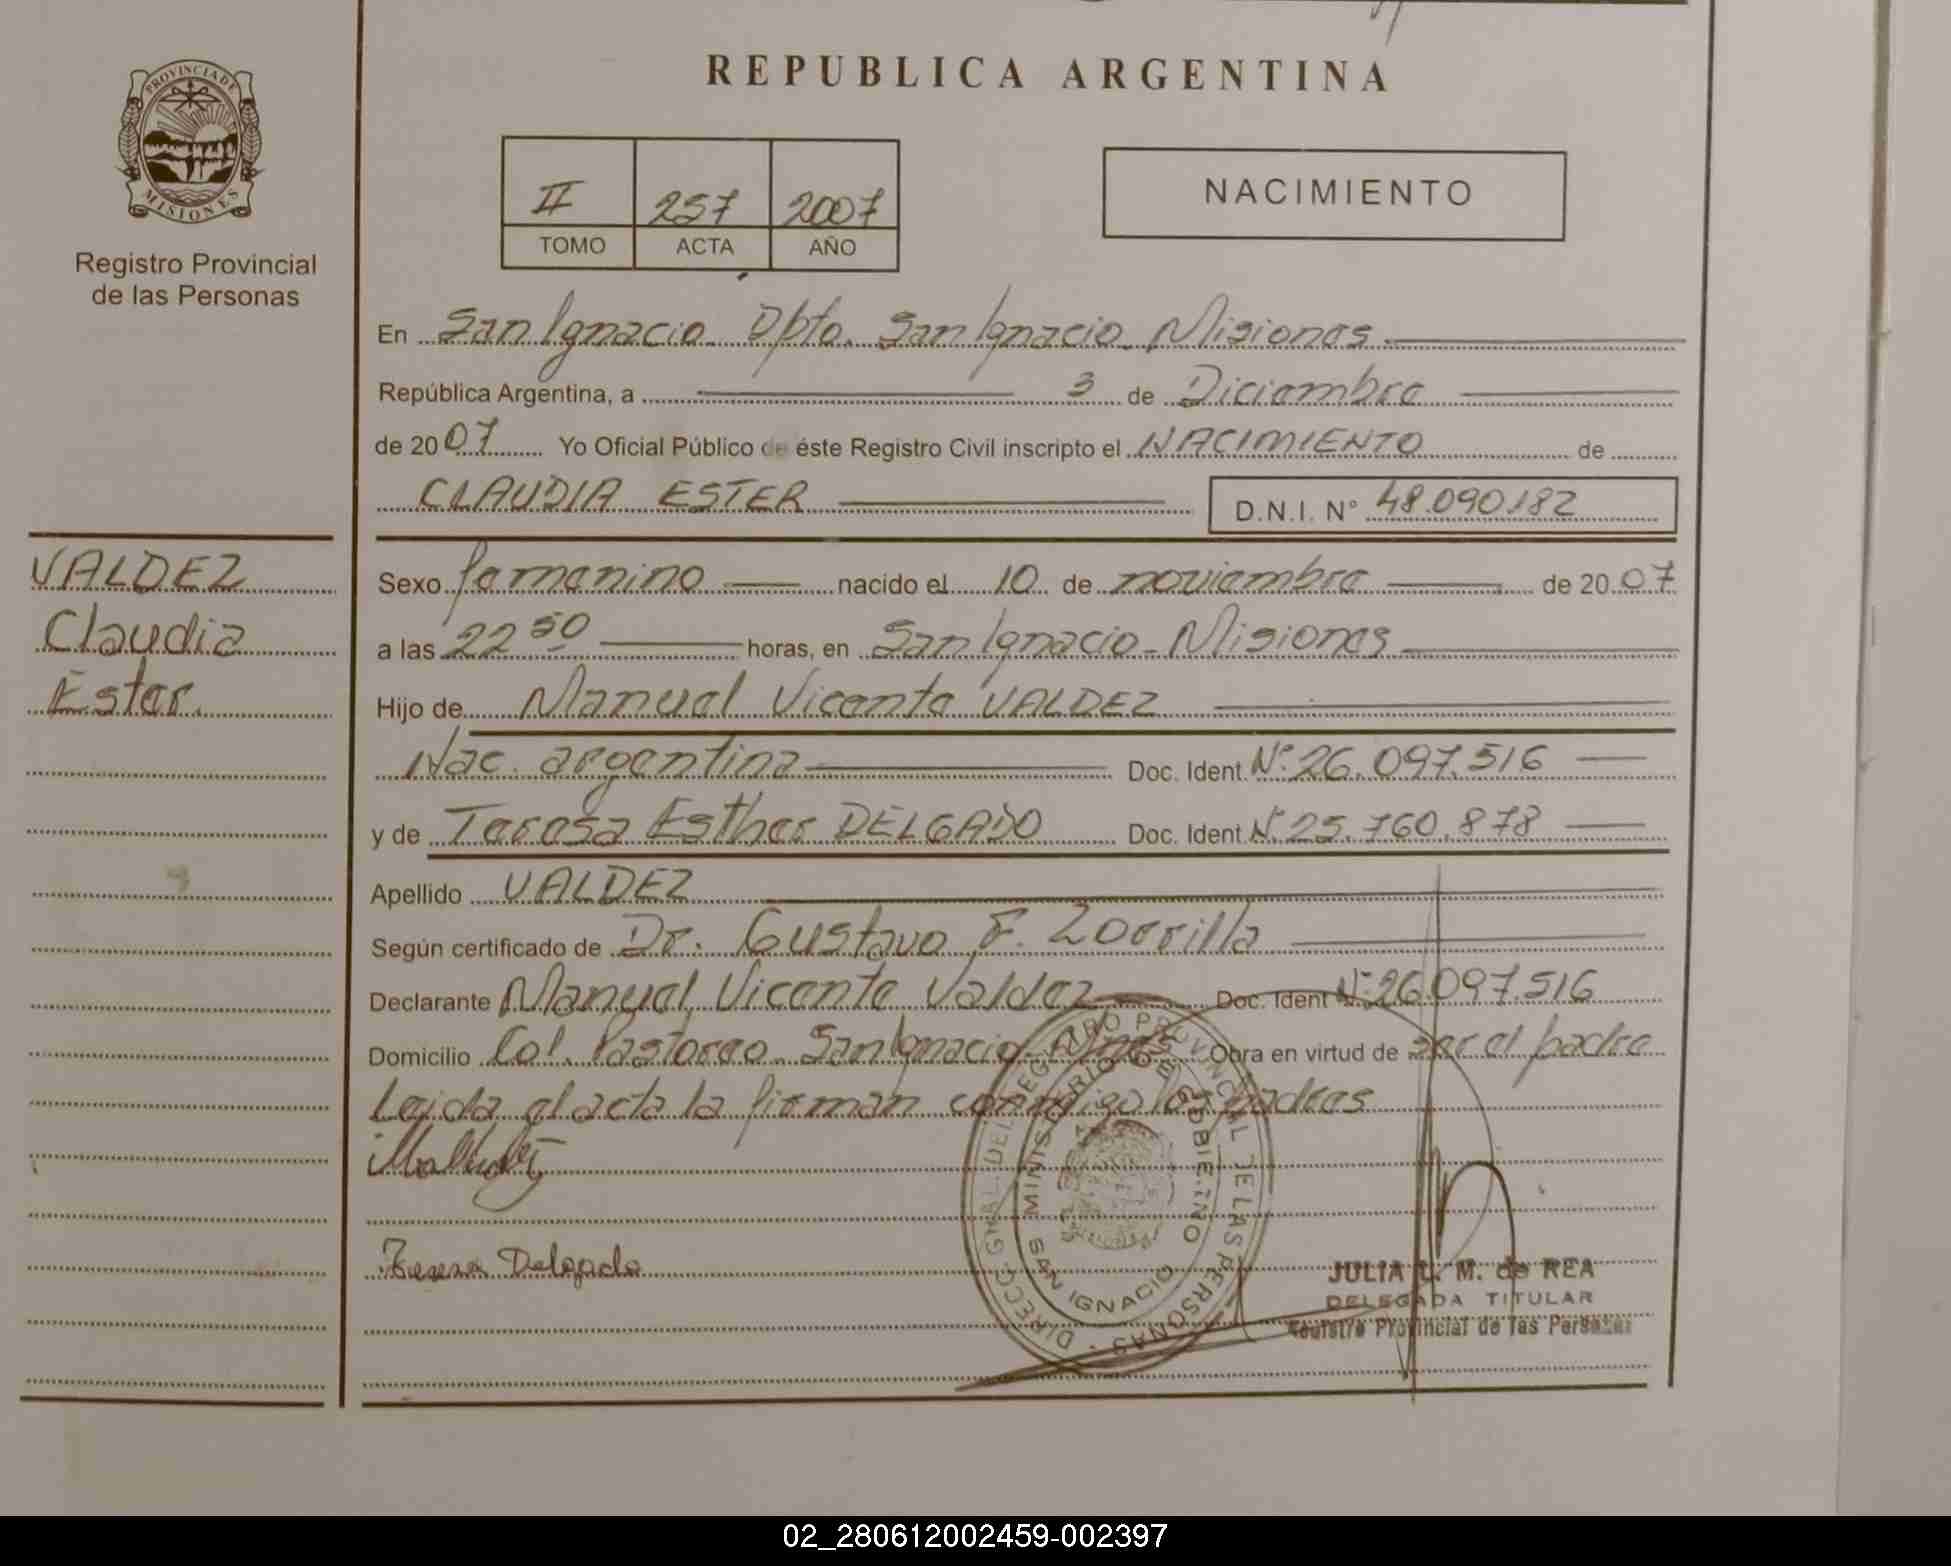 REPUBLICA ARGENTINA
PROVINCIA DE
MISIONES
Registro Provincial
de las Personas
II 257 2007
TOMO ACTA AÑO
NACIMIENTO
En San Ignacio Dpto. San Ignacio Misiones
República Argentina, a 3 de Diciembre
de 2007 Yo Oficial Público de éste Registro Civil inscripto el NACIMIENTO de
CLAUDIA ESTER D.N.I. N° 48.090.182
VALDEZ
Claudia
Ester.
Sexo femenino nacido el 10 de noviembre de 2007
a las 22 50 horas, en San Ignacio - Misiones
Hijo de Manuel Vicente VALDEZ
Nac. argentina Doc. Ident. N° 26.097.516
y de Teresa Esther DELGADO Doc. Ident. N° 25.760.878
Apellido VALDEZ
Según certificado de Dr. Gustavo F. Zorrilla
Declarante Manuel Vicente Valdez Doc. Ident N° 26.097.516
Domicilio Col. Pastoreo. San Ignacio Mnes Obra en virtud de ser el padre
Leida el acta la firman conmigo los padres
Teresa Delgado
DIRECC. GRAL. DEL REGISTRO PROVINCIAL DE LAS PERSONAS
MINISTERIO DE GOBIERNO
SAN IGNACIO
JULIA L. M. de REA
DELEGADA TITULAR
Registro Provincial de las Personas
02_280612002459-002397